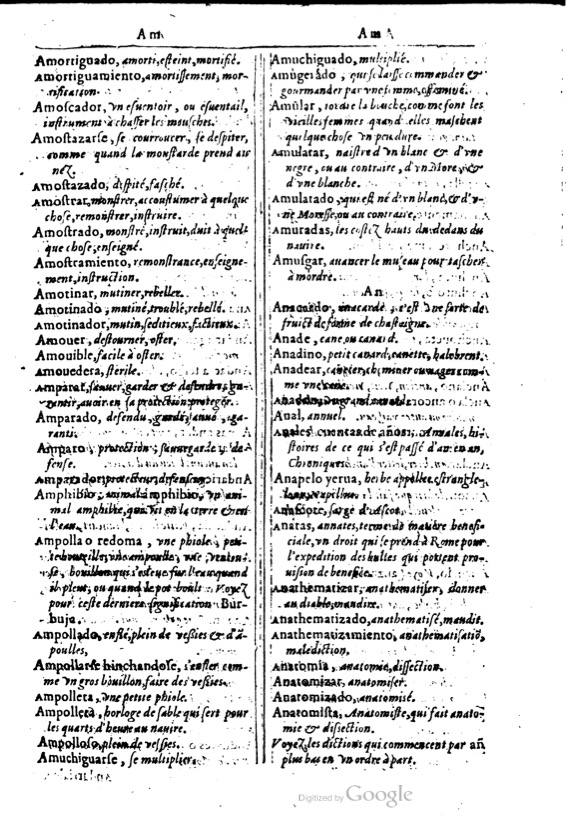 Am
Amortiguado, amorti, esteint, mortifié.
Amortiguamiento, amortissement, mor-
tification.
Amoscador, vn esuentoir, ou esuentail,
instrument à chasser les mousches.
Amostazarse, se courroucer, se despiter,
comme quand la moustarde prend au
nez.
Amostazado, despité, fasché.
Amostrar, monstrer, accoustumer à quelque
chose, remonstrer, instruire.
Amostrado, monstré, instruit, duit à quel-
que chose, enseigné.
Amostramiento, remonstrance, enseigne-
ment, instruction.
Amotinar, mutiner, rebeller.
Amotinado, mutiné, troublé, rebellé.
Amotinador, mutin, seditieux, factieux.
Amouer, destourner, oster.
Amouible, facile à oster.
Amouedera, sterile.
Amparar, sauuer, garder & defendre, ga-
rantir, auoir en sa protection, proteger.
Amparado, defendu, gardé, sauué, ga-
ranti.
Amparo, protection, sauuegarde, de-
fense.
Amparador, protecteur, defenseur.
Amphibio, animal amphibio, vn ani-
mal amphibie, qui vit en la terre & en
l'eau.
Ampolla o redoma, vne phiole, pe-
te bouteille, vne ampoulle, vne
bouillon qui s'esleue sur l'eau quand
il pleut, ou quand le pot boult. Voyez
pour ceste derniere signification Bur-
buja.
Ampollado, enflé, plein de vessies & d'ã-
poulles,
Ampollarse hinchandose, s'enfler com-
me vn gros bouillon, faire des vessies.
Ampolleta, vne petite phiole.
Ampolleta, horloge de sable qui sert pour
les quarts d'heure au nauire.
Ampolloso, plein de vessies.
Amuchiguarse, se multiplier.
Am
Amuchiguado, multiplié.
Amugerado, qui se laisse commander &
gourmander par vne femme, effeminé.
Amular, tordre la bouche, comme font les
vieilles femmes quand elles maschent
quelque chose
Amulatar, naistre d'vn blanc & d'vne
negre, ou au contraire, d'vn More, &
d'vne blanche.
Amulatado, qui est né d'vn blanc, & d'v-
ne Moresse, ou au contraire.
Amuradas, les costez hauts du dedans du
nauire.
Amusgar, auancer le museau pour tascher
à mordre.
An
Anacardo, anacarde, c'est vne sorte de
fruict de forme de chastaigne.
Anade, cane, ou canard.
Anadino, petit canard, canette, halebrent.
Anadear, cheminer ou nager com-
me vne cane.
Anual, annuel.
Anales cuentas de años, Annales, hi-
stoires de ce qui s'est passé d'an en an,
Chroniques.
Anapelo yerua, herbe appellee
Anascote, sarge d'ascot.
Anatas, annates, terme de matiere benefi-
ciale, vn droit qui se prend à Rome pour
l'expedition des bulles qui portent pro-
uision de benefice.
Anathematizar, anathematiser, donner
au diable, maudire.
Anathematizado, anathematisé, maudit.
Anathematizamiento, anathematisatiõ,
malediction.
Anatomia, anatomie, dissection.
Anatomizar, anatomiser.
Anatomizado, anatomisé.
Anatomista, Anatomiste, qui fait anato-
mie & dissection.
Voyez les dictions qui commencent par añ
plus bas en vn ordre à part.
Digitized by Google